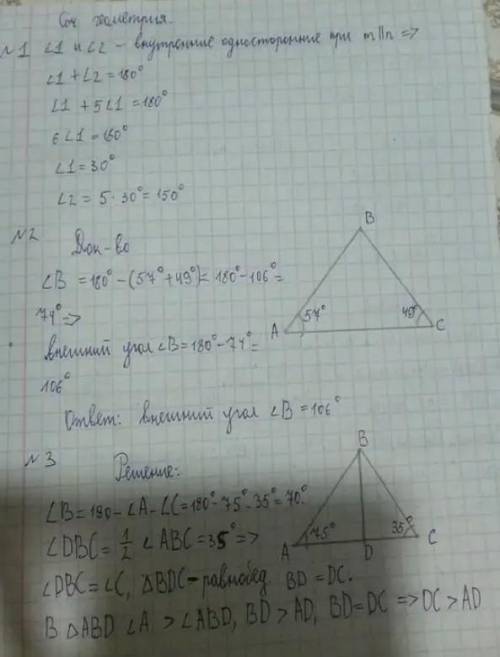 Соч геометрия.
№1 ∠1 и ∠2 – внутренние односторонние при m||n =>
∠1 + ∠2 = 180°
∠1 + 5∠1 = 180°
6∠1 = 180°
∠1 = 30°
∠2 = 5 · 30° = 150°
№2 Док-во
∠B = 180° – (57° + 49°) = 180° – 106° =
74° =>
внешний угол ∠B = 180° – 74° =
106°
Ответ: внешний угол ∠B = 106°
B
A 57° 49° C
№3 Решение:
∠B = 180 – ∠A – ∠C = 180° – 75° – 35° = 70°.
∠DBC = 1/2 ∠ABC = 35° =>
∠DBC = ∠C, △BDC – равнобед. BD = DC.
В △ABD ∠A > ∠ABD, BD > AD, BD = DC => DC > AD
B
A 75° D 35° C